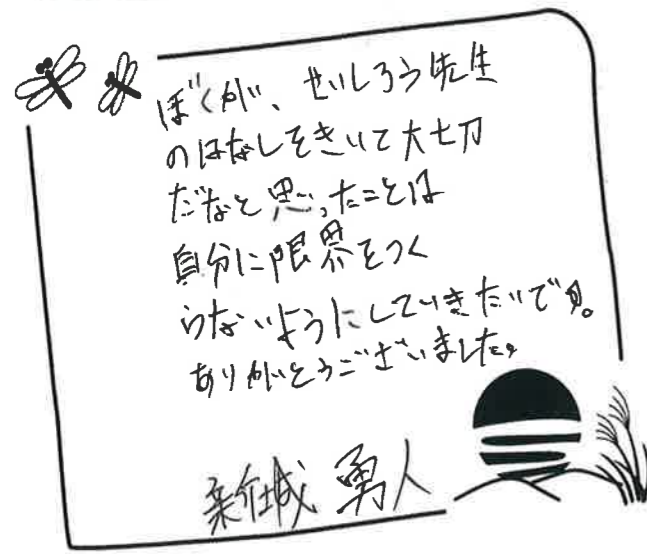 ぼくが、せいしろう先生
のはなしをきいて大切
だなと思ったことは
自分に限界をつく
らないようにしていきたいです。
ありがとうございました。
新城 勇人